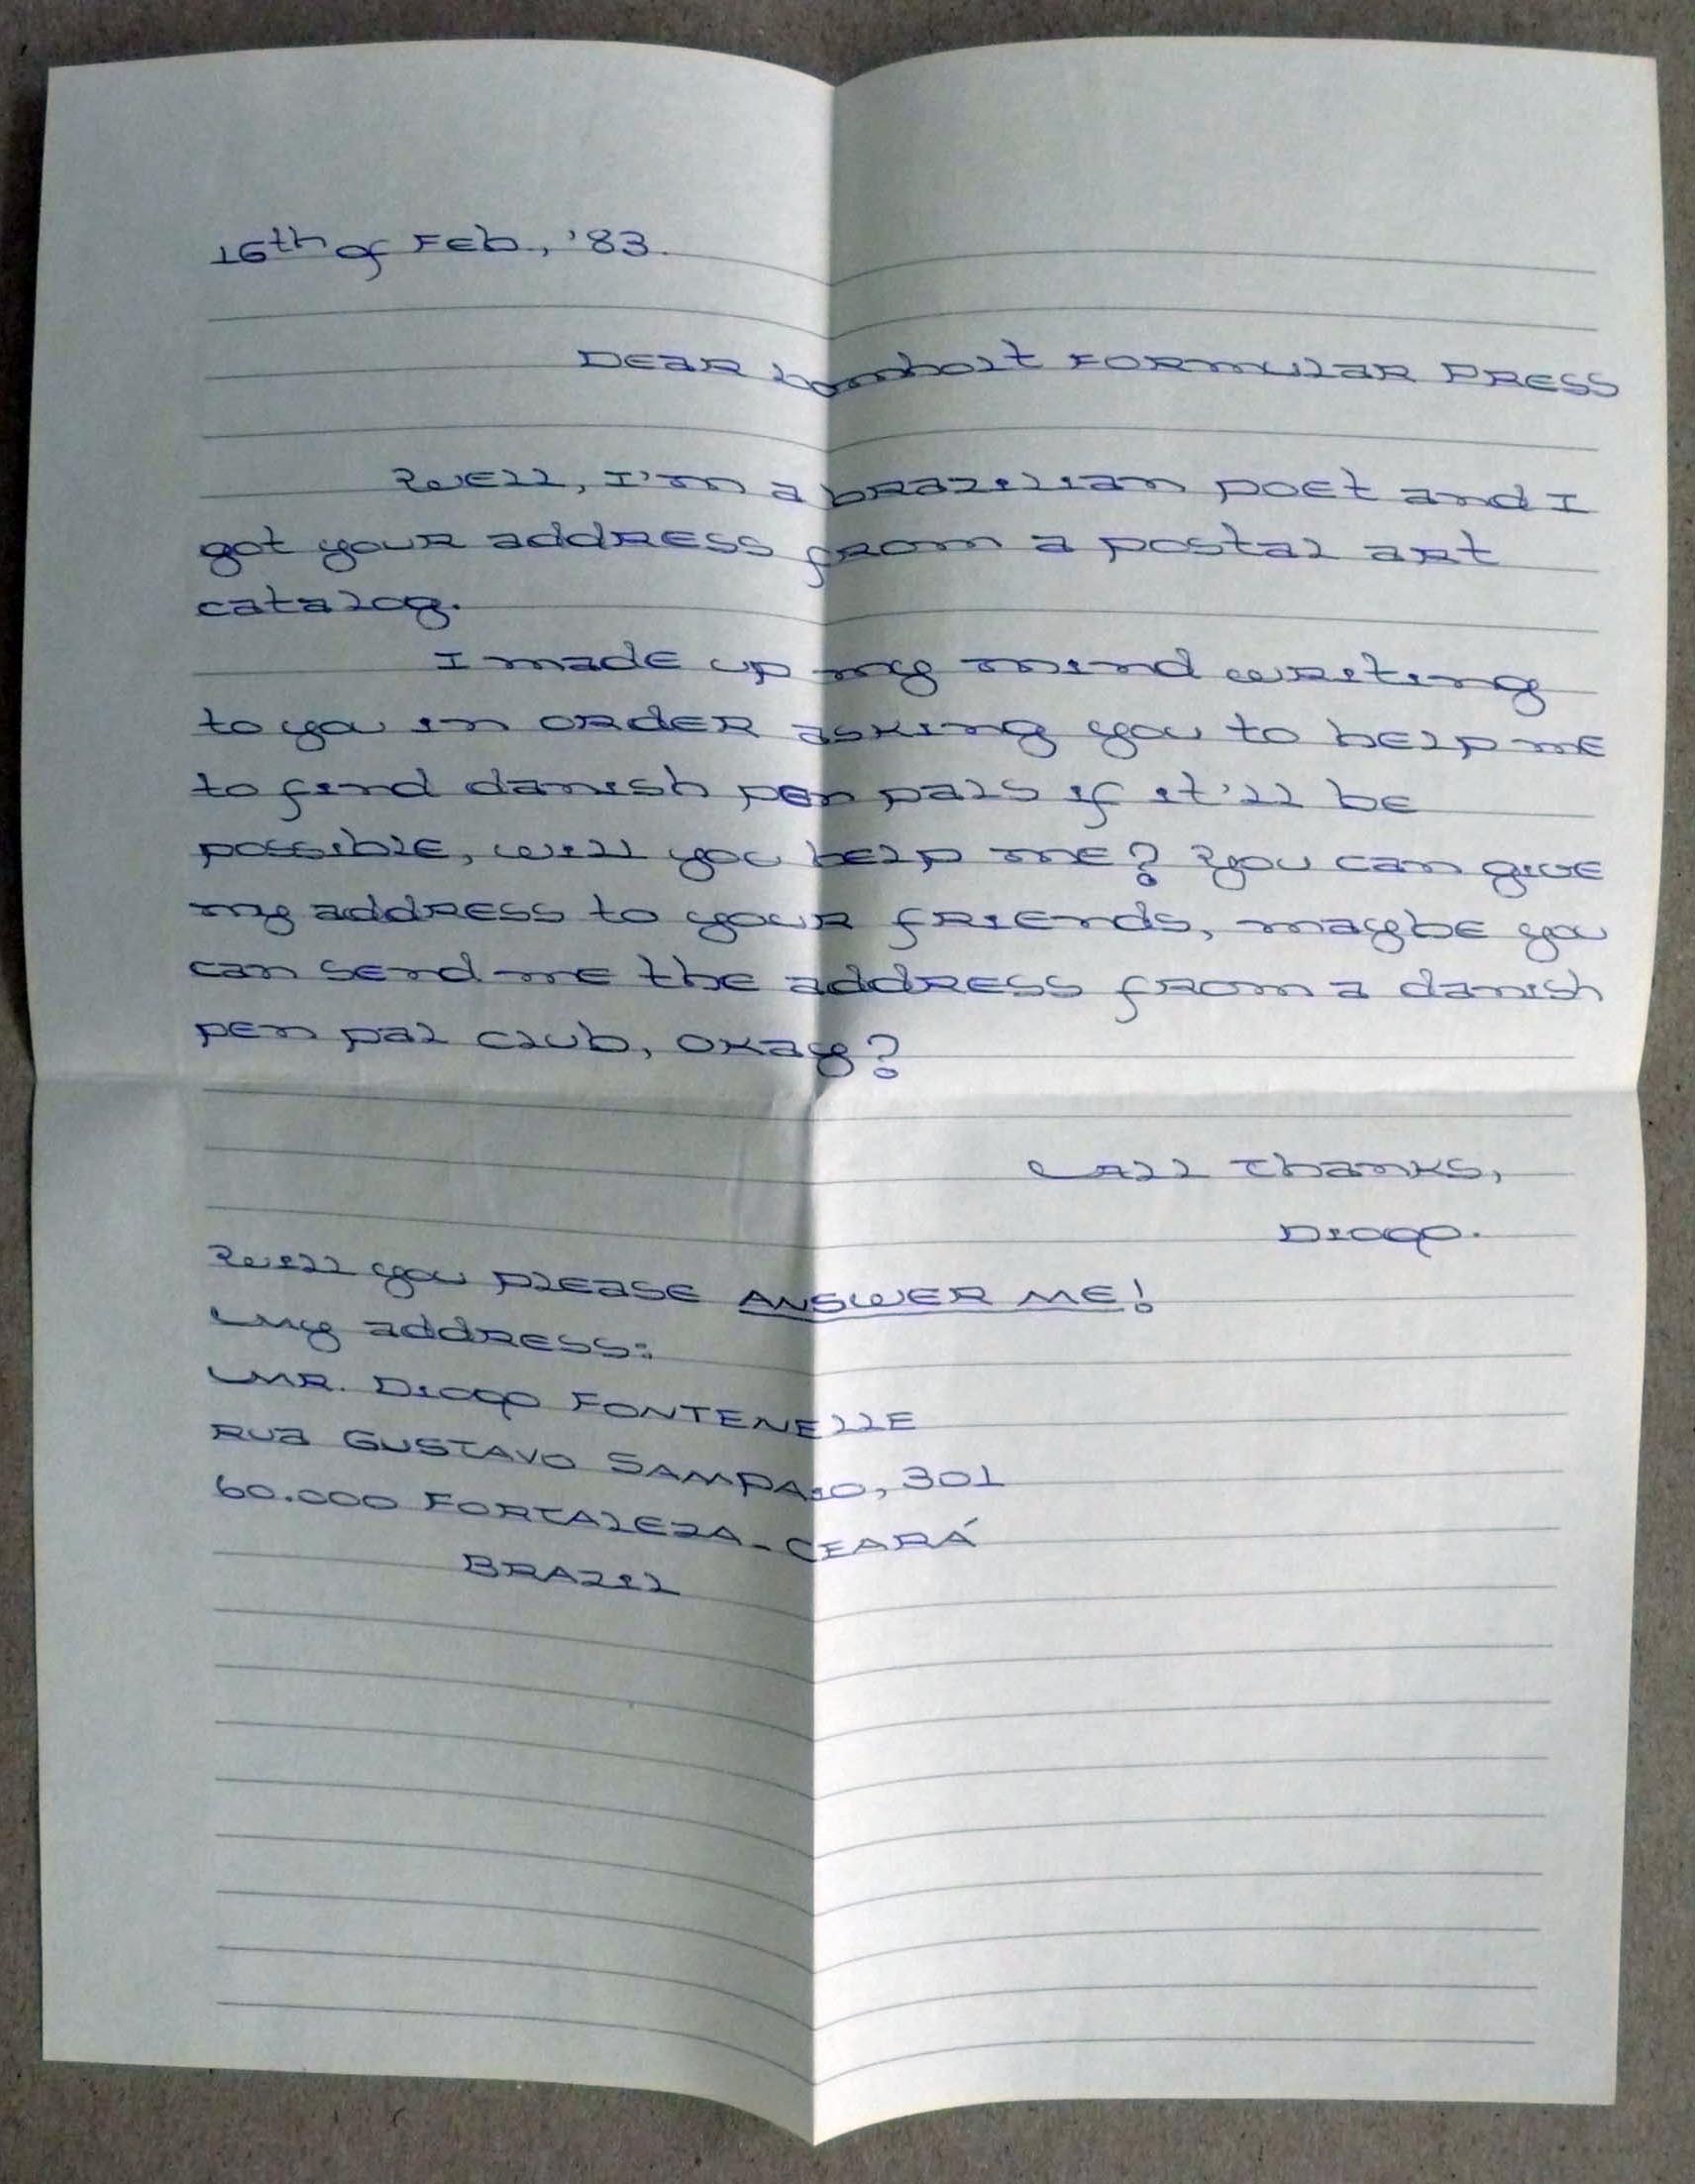 16th of Feb., '83.
Dear bomholt Formular Press
Well, I'm a brazilian poet and I
got your address from a postal art
catalog.
I made up my mind writing
to you in order asking you to help me
to find danish pen pals if it'll be
possible, will you help me? You can give
my address to your friends, maybe you
can send me the address from a danish
pen pal club, okay?
All Thanks,
Diogo.
Will you please ANSWER ME!
My address:
MR. Diogo FONTENELLE
Rua GUSTAVO SAMPAIO, 301
60.000 FORTALEZA - CEARÁ
BRAZIL